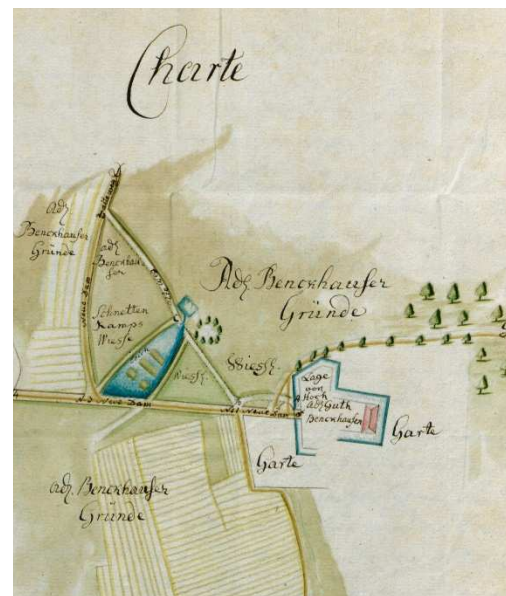 Charte
Adl.
Benckhauser
Gründe
adl.
Benckhau-
ser
Schnetten
Kamps
Wiesse
Teich
Adl. Benckhauser
Gründe
Wiesse.
Wiesse.
Lage
von
Hoch
Adl. Guth
Benckhausen
Neue Dam
Neue Dam
Der Neue Dam
Garte
Garte
adl. Benckhauser
Gründe